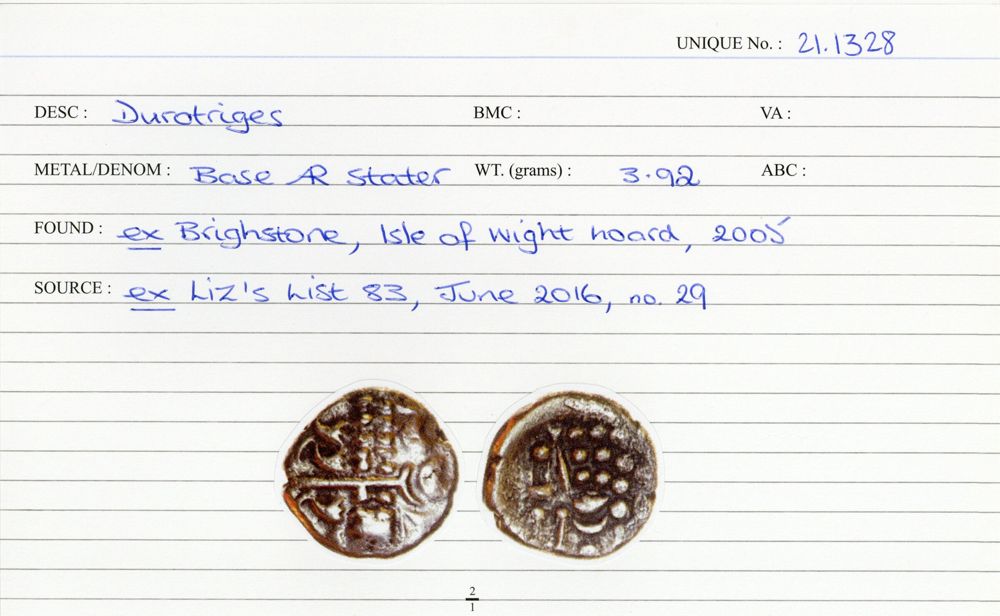 UNIQUE No. : 21.1328
DESC : Durotriges BMC : VA :
METAL/DENOM : Base AR stater WT. (grams) : 3.92 ABC :
FOUND : ex Brighstone, Isle of Wight hoard, 2005
SOURCE : ex Liz's List 83, June 2016, no. 29
2
1